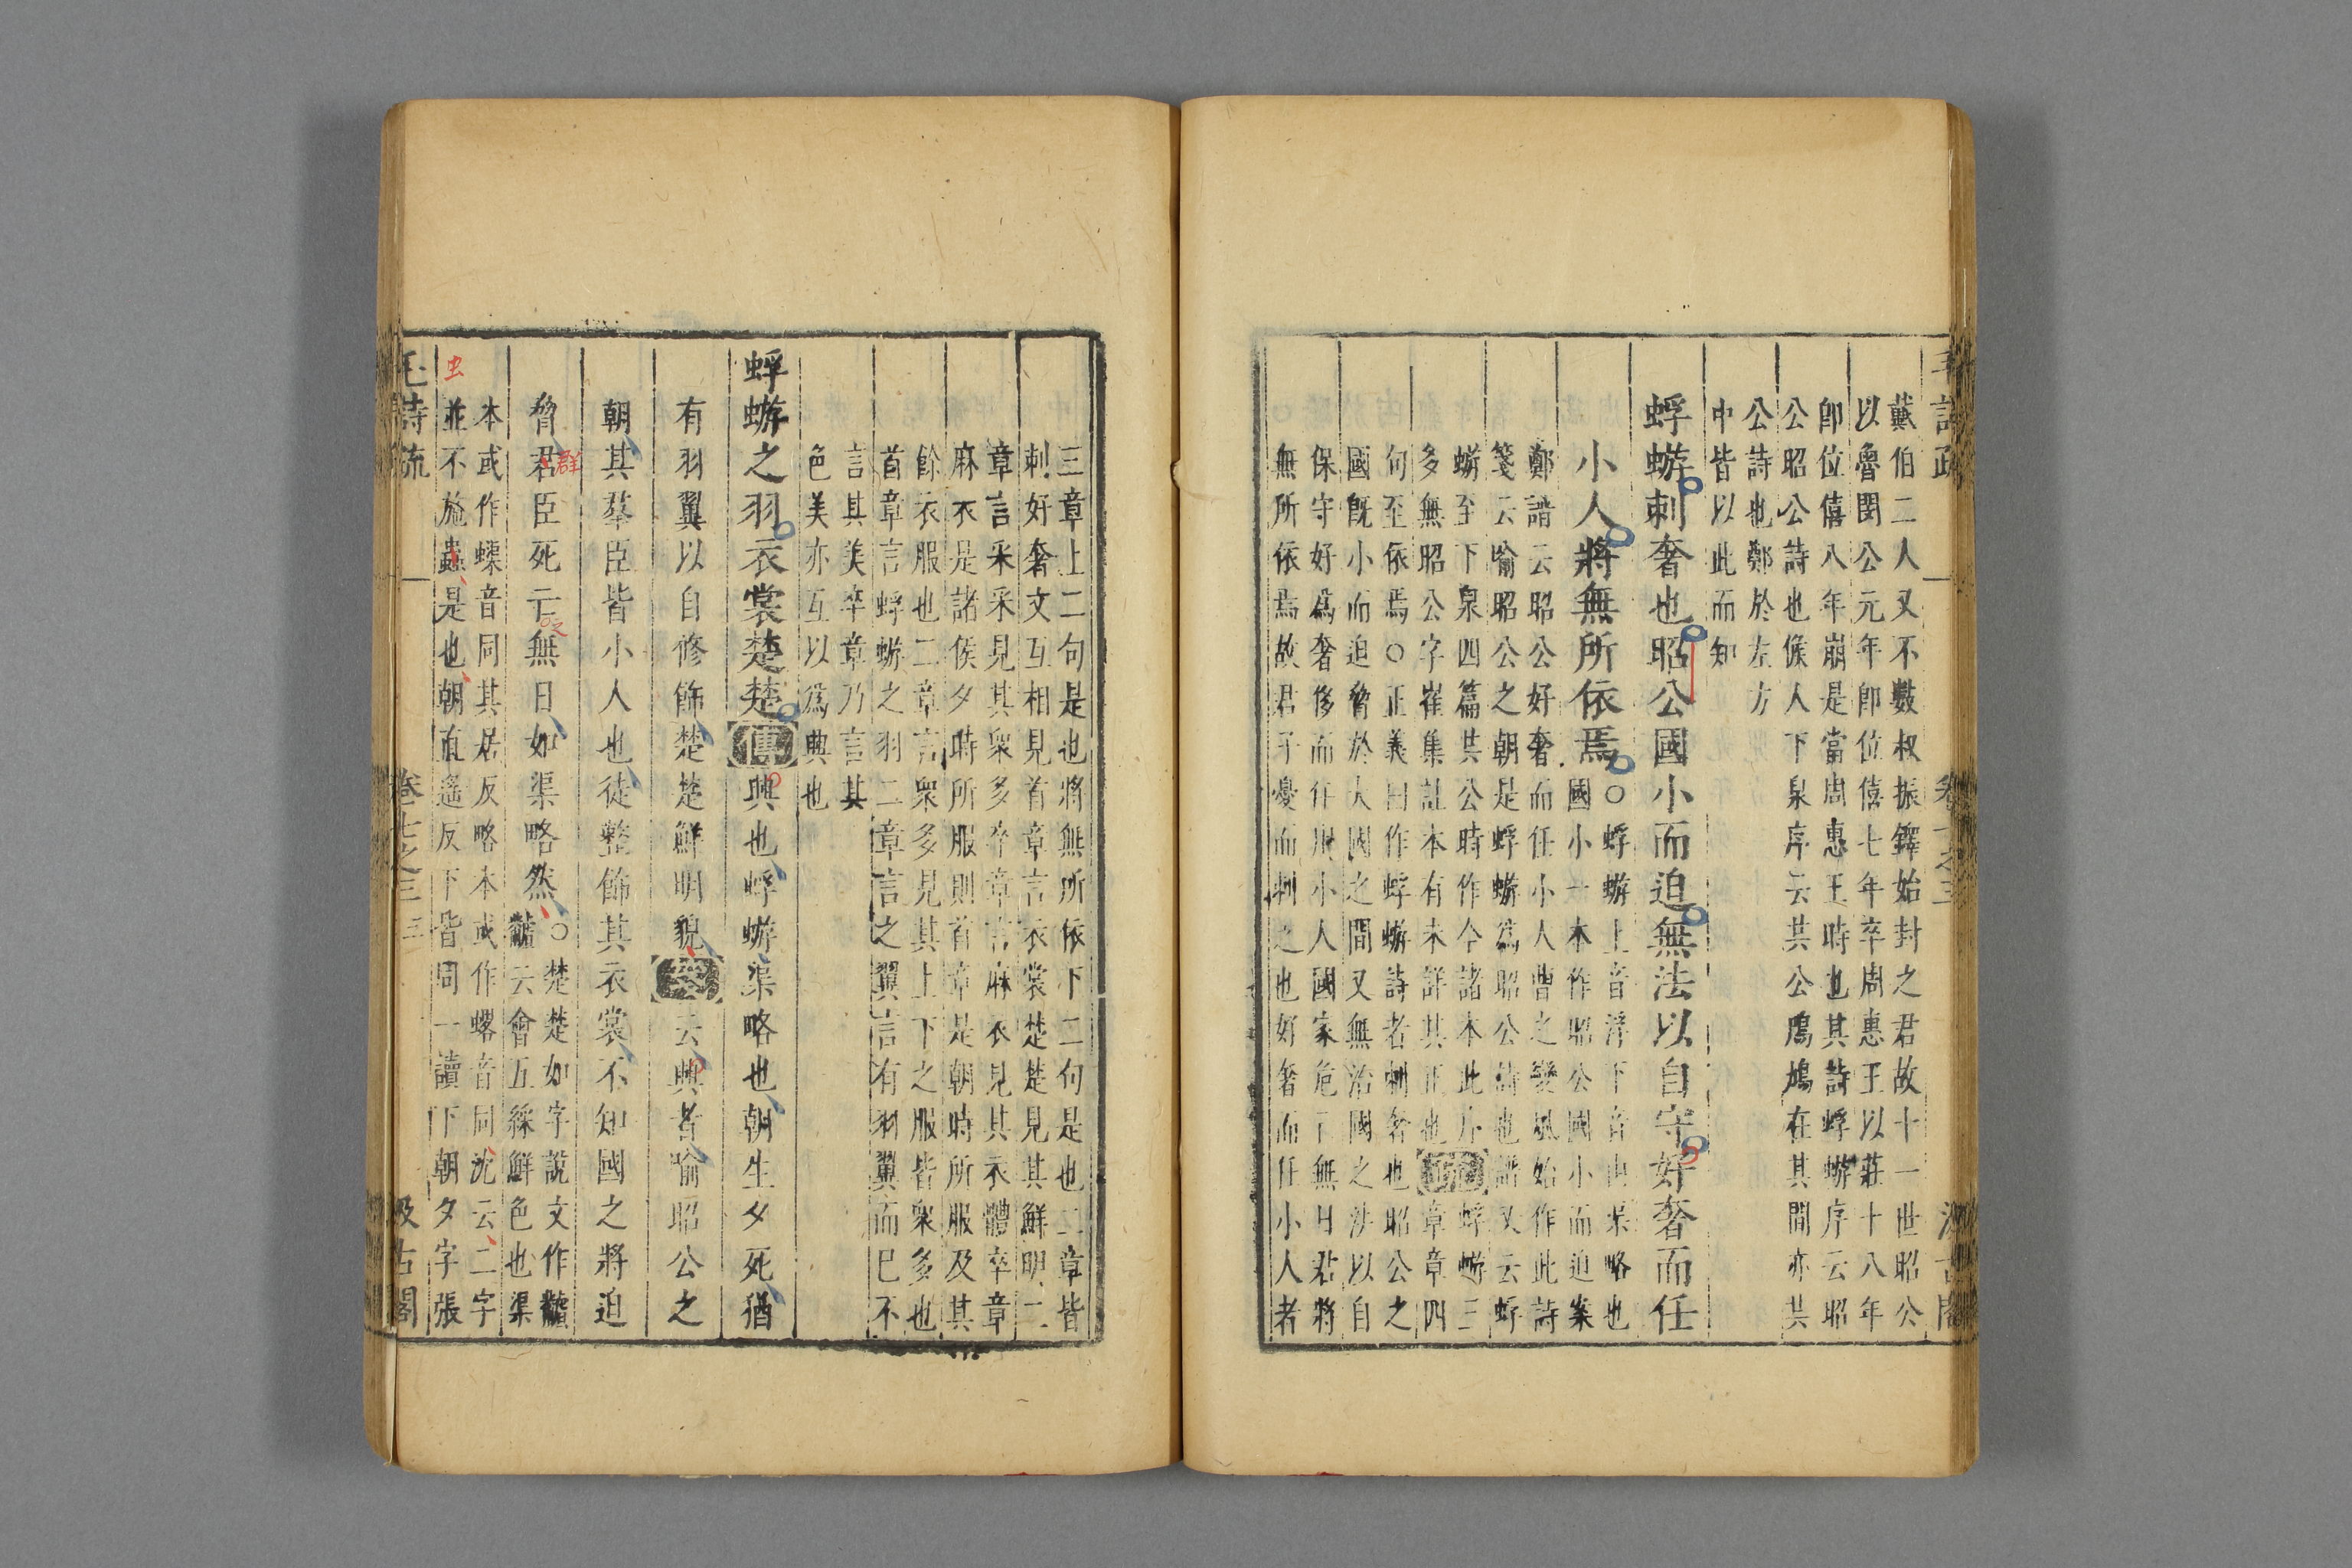 戴伯二人又不數叔振鐸始封之君故十一世昭公
以魯閔公元年卽位僖七年卒周惠王以莊十八年
卽位僖八年崩是當周惠王時也其詩蜉蝣序云昭
公昭公詩也候人下泉序云共公鳲鳩在其間亦共
公詩也鄭於左方
中皆以此而知
蜉蝣刺奢也昭公國小而迫無法以自守好奢而任
小人將無所依焉
○蜉蝣上音浮下音由渠略也
國小一本作昭公國小而迫案
鄭譜云昭公好奢而任小人曹之變風始作此詩
箋云喻昭公之朝是蜉蝣爲昭公詩也譜又云蜉
蝣至下泉四篇共公時作今諸本此序
多無昭公字崔集註本有未詳其正也
疏
蜉蝣三
章章四
句至依焉○正義曰作蜉蝣詩者刺奢也昭公之
國旣小而迫脅於大國之間又無治國之法以自
保守好爲奢侈而任用小人國家危亡無日君將
無所依焉故君子憂而刺之也好奢而任小人者
三章上二句是也將無所依下二句是也二章皆
刺好奢文互相見首章言衣裳楚楚見其鮮明二
章言采采見其衆多卒章言麻衣見其衣體卒章
麻衣是諸侯夕時所服則首章是朝時所服及其
餘衣服也二章言衆多見其上下之服皆衆多也
首章言蜉蝣之羽二章言之翼言有羽翼而已不
言其美卒章乃言其
色美亦互以爲典也
蜉蝣之羽衣裳楚楚傳興也蜉蝣渠略也朝生夕死猶
有羽翼以自修飾楚楚鮮明貌箋云興者喻昭公之
朝其羣臣皆小人也徒整飾其衣裳不知國之將迫
脅君臣死亡無日如渠略然
群
○楚楚如字說文作䯕
䯕云會五綵鮮色也渠
本或作蟝音同其居反略本或作䗉音同沈云二字
虫
並不施蟲是也朝直遙反下皆同一讀下朝夕字張
毛詩疏
卷七之三
三
汲古閣